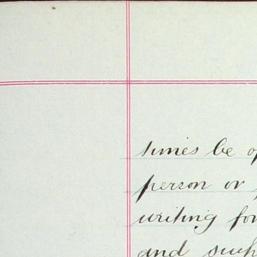 times be
person or
writing for
and such